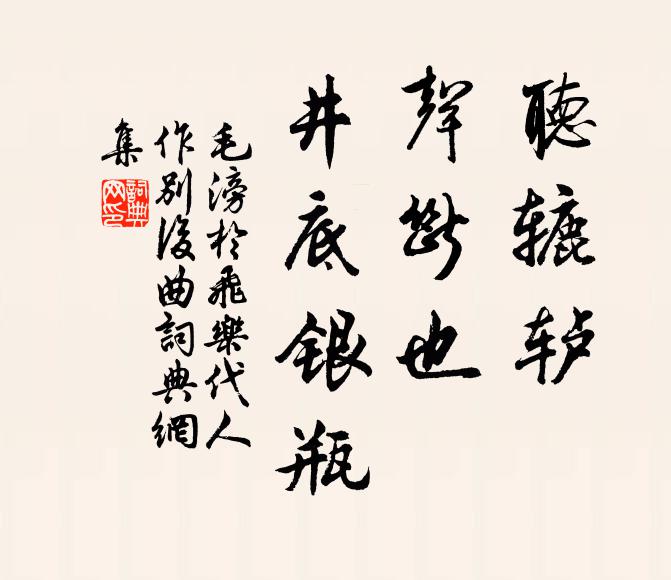 聽辘轳
聲斷也
井底銀瓶
毛滂於飛樂代人
作別後曲詞典網
集
詞典
网印